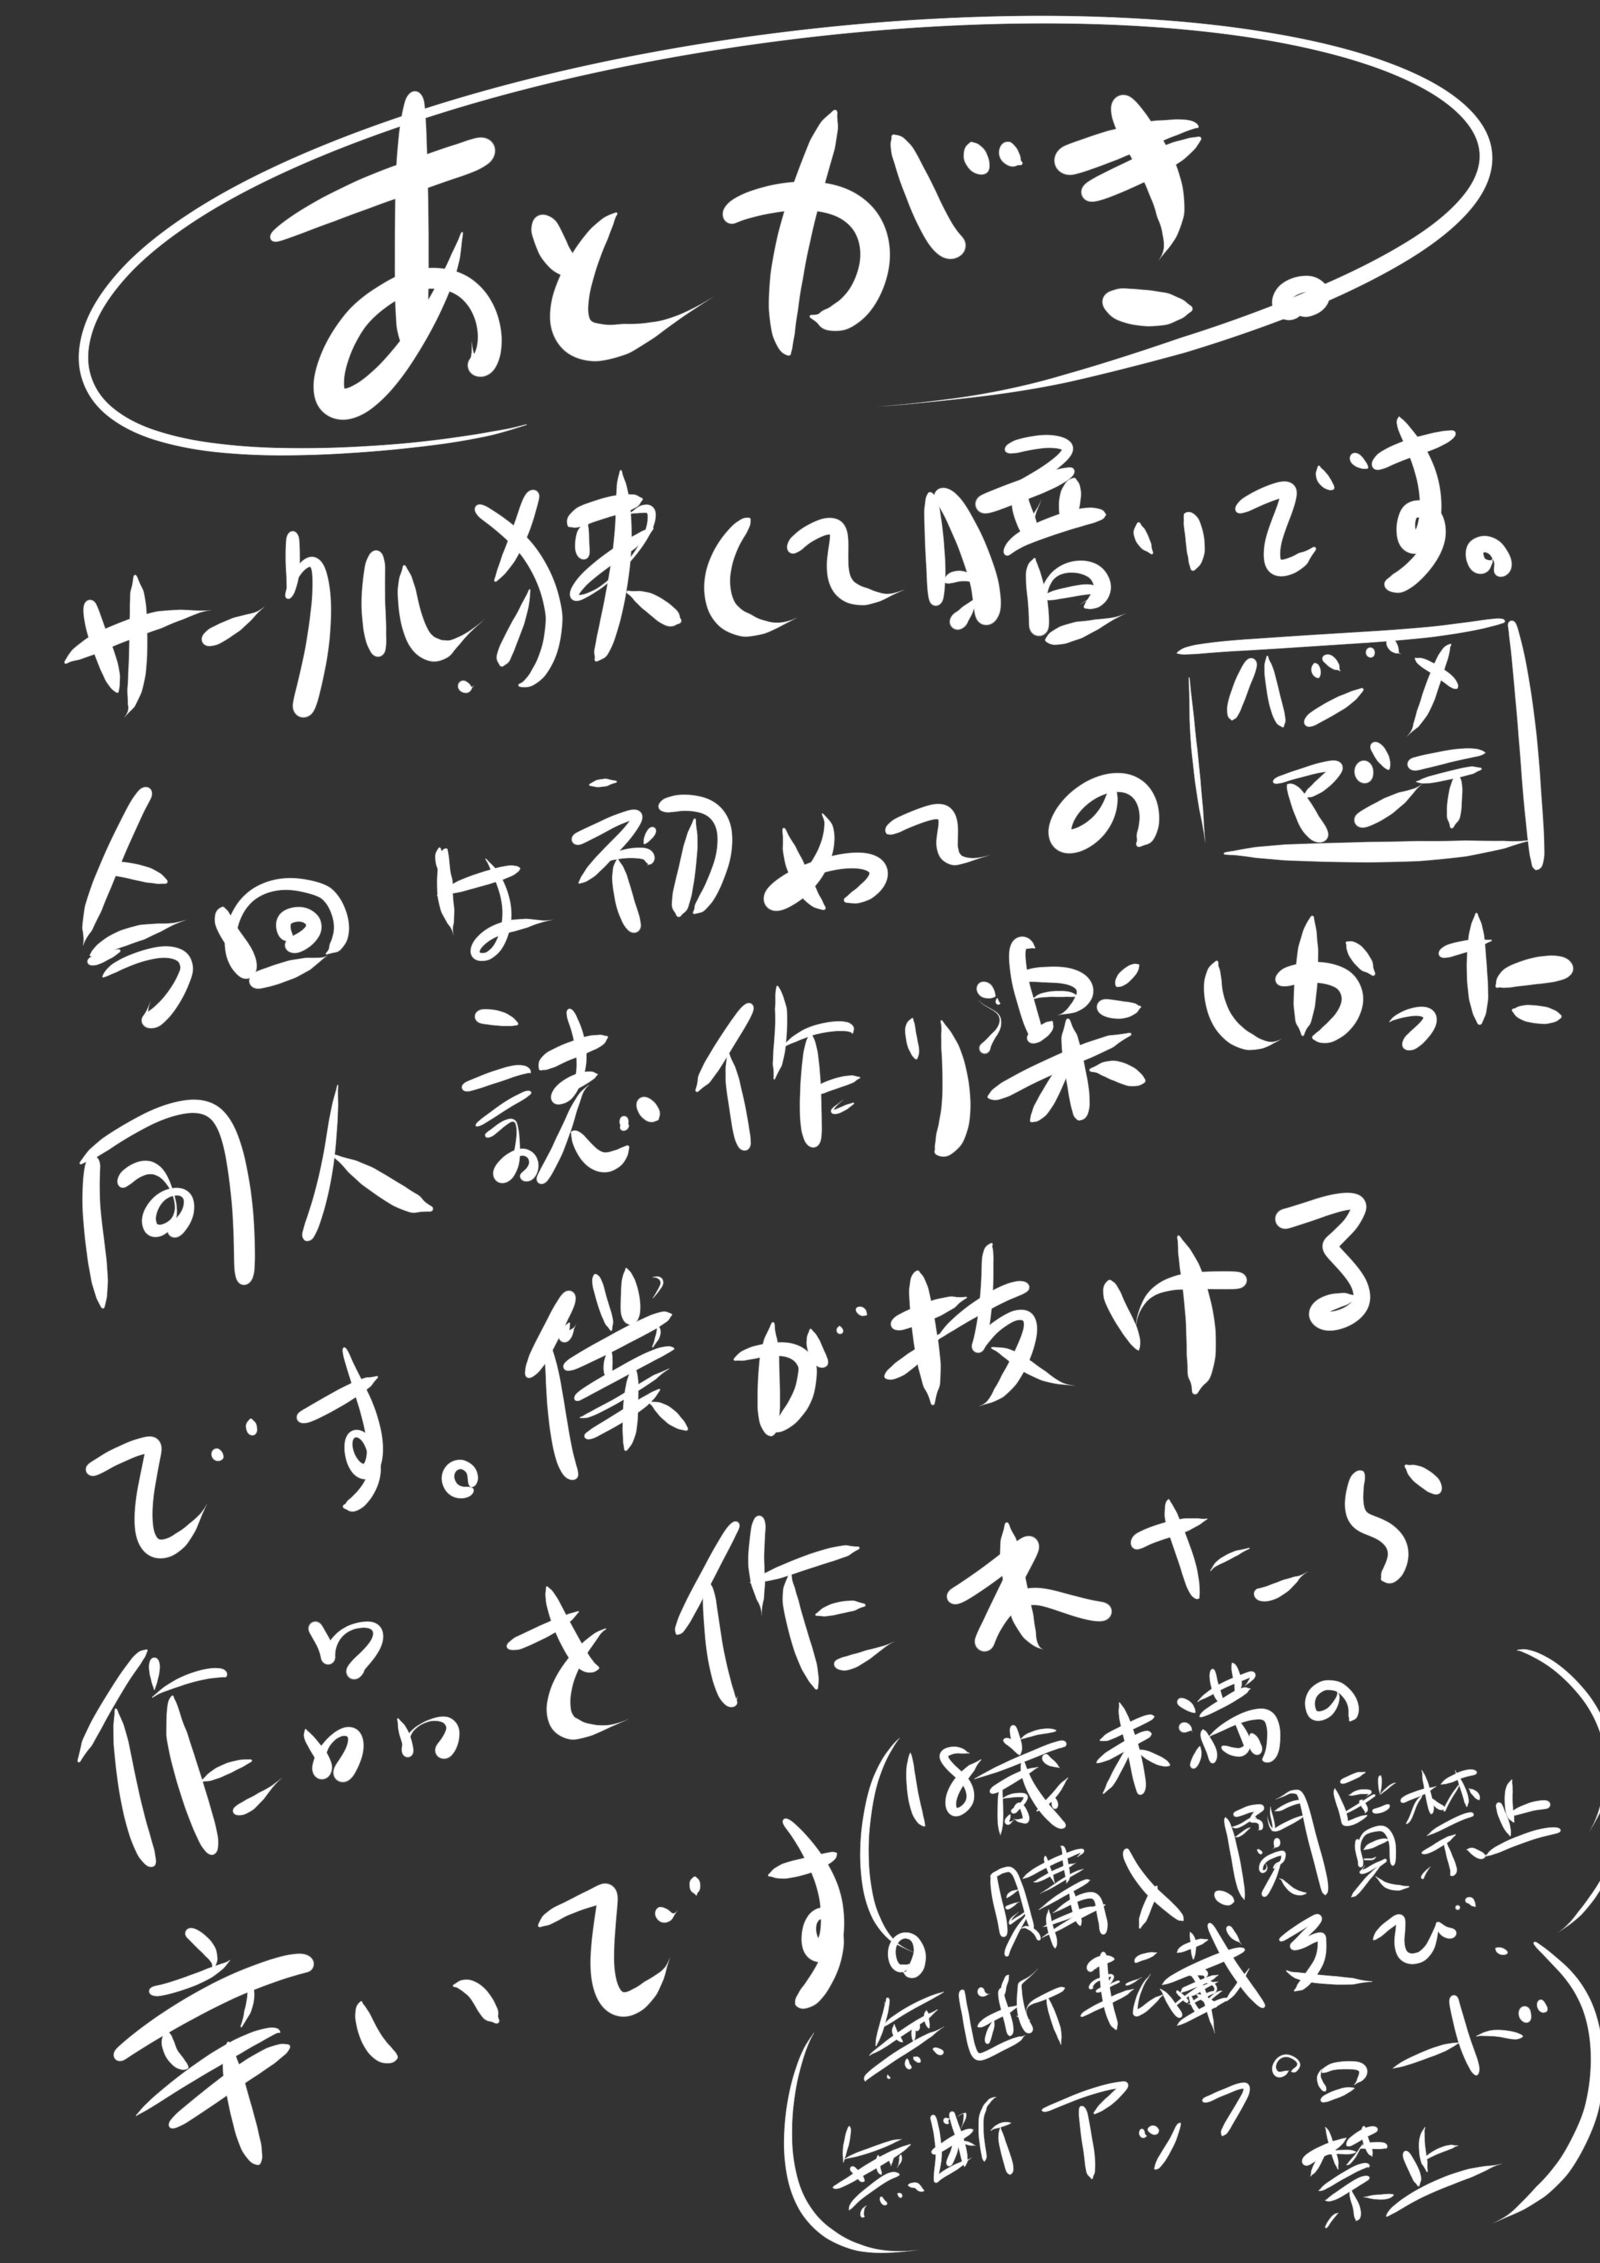 あとがき
サークル猿して暗いです。
今回は初めての
同人誌.作り楽しかった
です。僕が抜ける
作品を作れたら
幸いです。
18歳未満の
購入.閲覧禁止
無断転載及び
無断アップロード
禁止